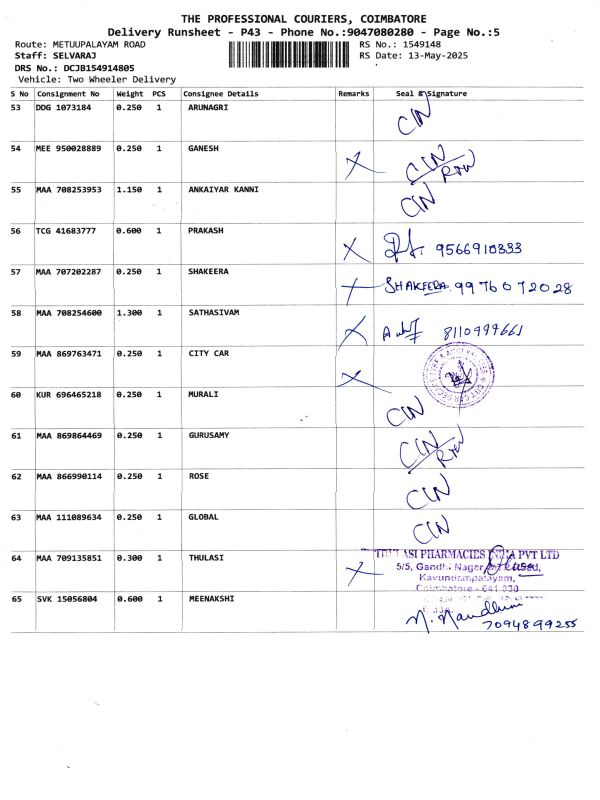 THE PROFESSIONAL COURIERS, COIMBATORE
Delivery Runsheet - P43 - Phone No.:9047080280 - Page No.:5
Route: METUUPALAYAM ROAD RS No.: 1549148
Staff: SELVARAJ RS Date: 13-May-2025
DRS No.: DCJB154914805
Vehicle: Two Wheeler Delivery
S No Consignment No Weight PCS Consignee Details Remarks Seal & Signature
53 DDG 1073184 0.250 1 ARUNAGRI CIN
54 MEE 950028889 0.250 1 GANESH X CIN
RTN
55 MAA 708253953 1.150 1 ANKAIYAR KANNI CIN
56 TCG 41683777 0.600 1 PRAKASH X 9566910333
57 MAA 707202287 0.250 1 SHAKEERA X SHAKEERA 9976072028
58 MAA 708254600 1.300 1 SATHASIVAM X 8110999661
59 MAA 869763471 0.250 1 CITY CAR X
60 KUR 696465218 0.250 1 MURALI CIN
61 MAA 869864469 0.250 1 GURUSAMY CIN
RTN
62 MAA 866990114 0.250 1 ROSE CIN
63 MAA 111089634 0.250 1 GLOBAL CIN
64 MAA 709135851 0.300 1 THULASI X THULASI PHARMACIES INDIA PVT LTD
5/5, Gandhi Nagar
Kavundampalayam,
Coimbatore - 641 030
65 SVK 15056804 0.600 1 MEENAKSHI N. Nandhini
7094899255